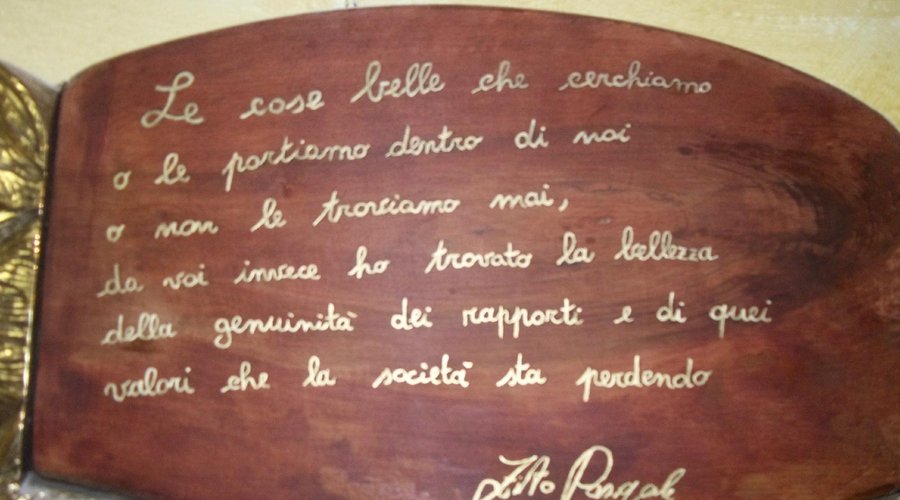 Le cose belle che cerchiamo
o le portiamo dentro di noi
o non le troviamo mai,
da voi invece ho trovato la bellezza
della genuinità dei rapporti e di quei
valori che la società sta perdendo